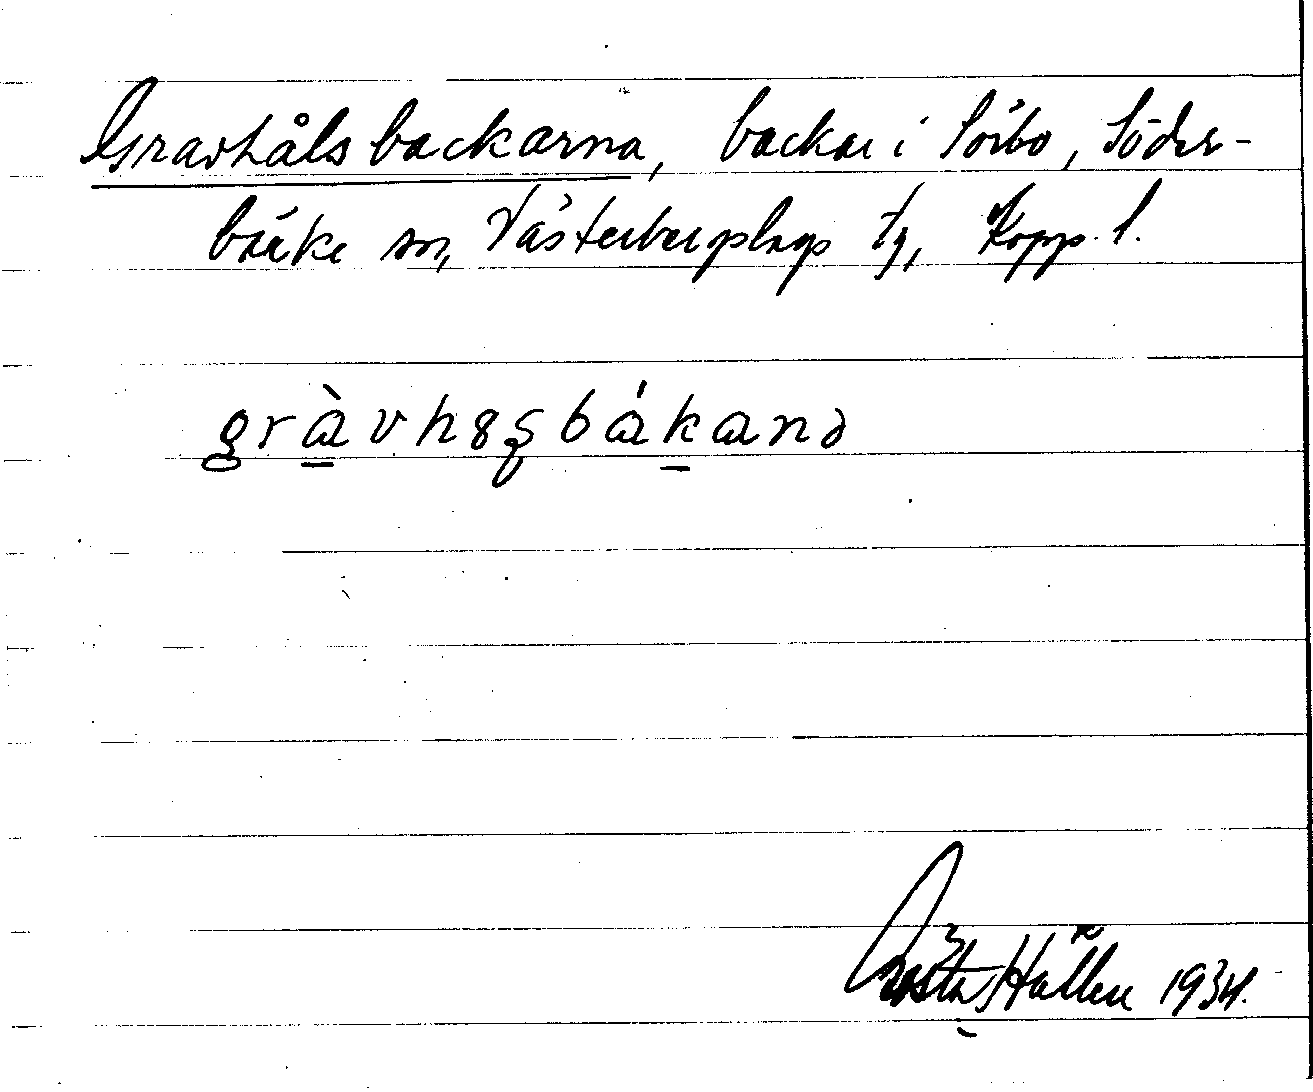 Gravhålsbackarna, backar i Sörbo, Söder-
bärke sn, Västerbergslags tg, Kopp. l.
gràvhȣʂbákanə
Gösta Hållen 1934.